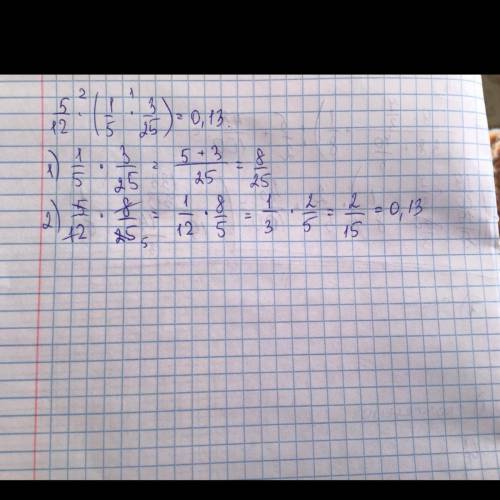 5/12 ·² (1/5 ·¹ 3/25) = 0,13.
1) 1/5 · 3/25 = (5 + 3)/25 = 8/25
2) 5/12 · 8/25 5 = 1/12 · 8/5 = 1/3 · 2/5 = 2/15 = 0,13